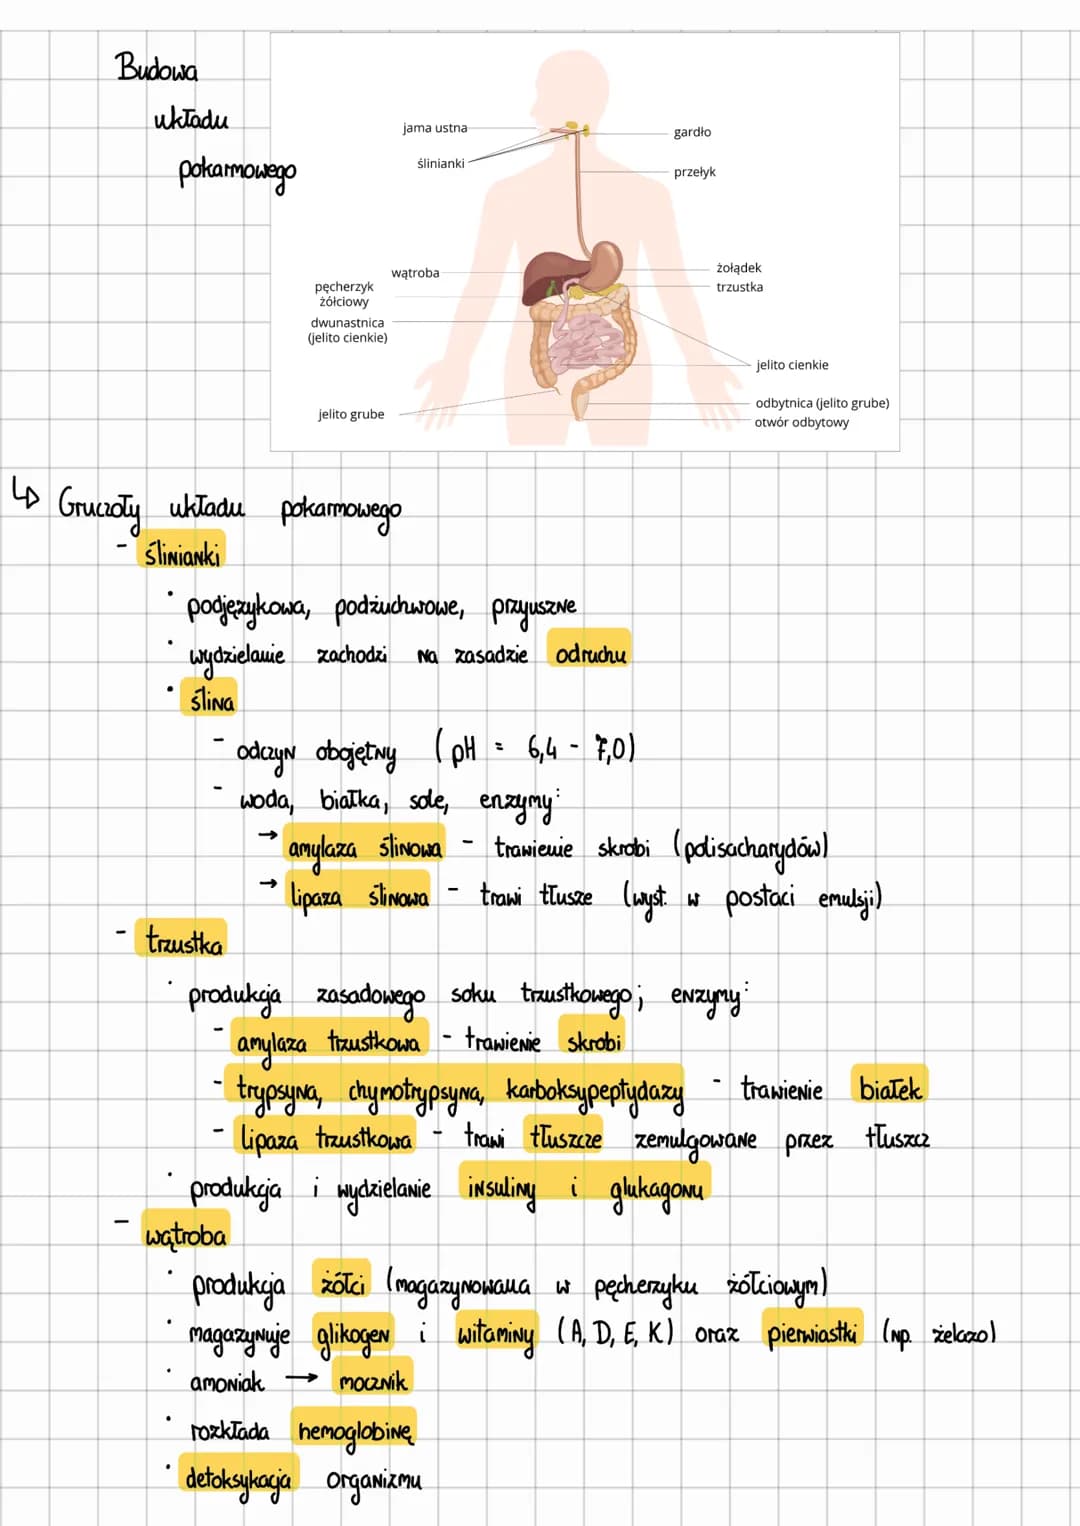 Budowa
układu
pokarmowego
jama ustna
ślinianki
gardło
przełyk
wątroba
pęcherzyk
żółciowy
dwunastnica
(jelito cienkie)
jelito grube
żołądek
trzustka
jelito cienkie
odbytnica (jelito grube)
otwór odbytowy
↳ Gruczoły układu pokarmowego
- ślinianki
• podjęzykowa, podżuchwowe, przyuszne
• wydzielanie zachodzi na zasadzie odruchu
• ślina
- odczyn obojętny (pH = 6,4 - 7,0)
- woda, białka, sole, enzymy:
→ amylaza ślinowa - trawienie skrobi (polisacharydów)
→ lipaza ślinowa - trawi tłusze (wyst. w postaci emulsji)
- trzustka
• produkcja zasadowego soku trzustkowego; enzymy:
- amylaza trzustkowa - trawienie skrobi
- trypsyna, chymotrypsyna, karboksypeptydazy - trawienie białek
- lipaza trzustkowa - trawi tłuszcze zemulgowane przez tłuszcz
• produkcja i wydzielanie insuliny i glukagonu
- wątroba
• produkcja żółci (magazynowana w pęcherzyku żółciowym)
• magazynuje glikogen i witaminy (A, D, E, K) oraz pierwiastki (np. żelazo)
• amoniak → mocznik
• rozkłada hemoglobinę
• detoksykacja organizmu